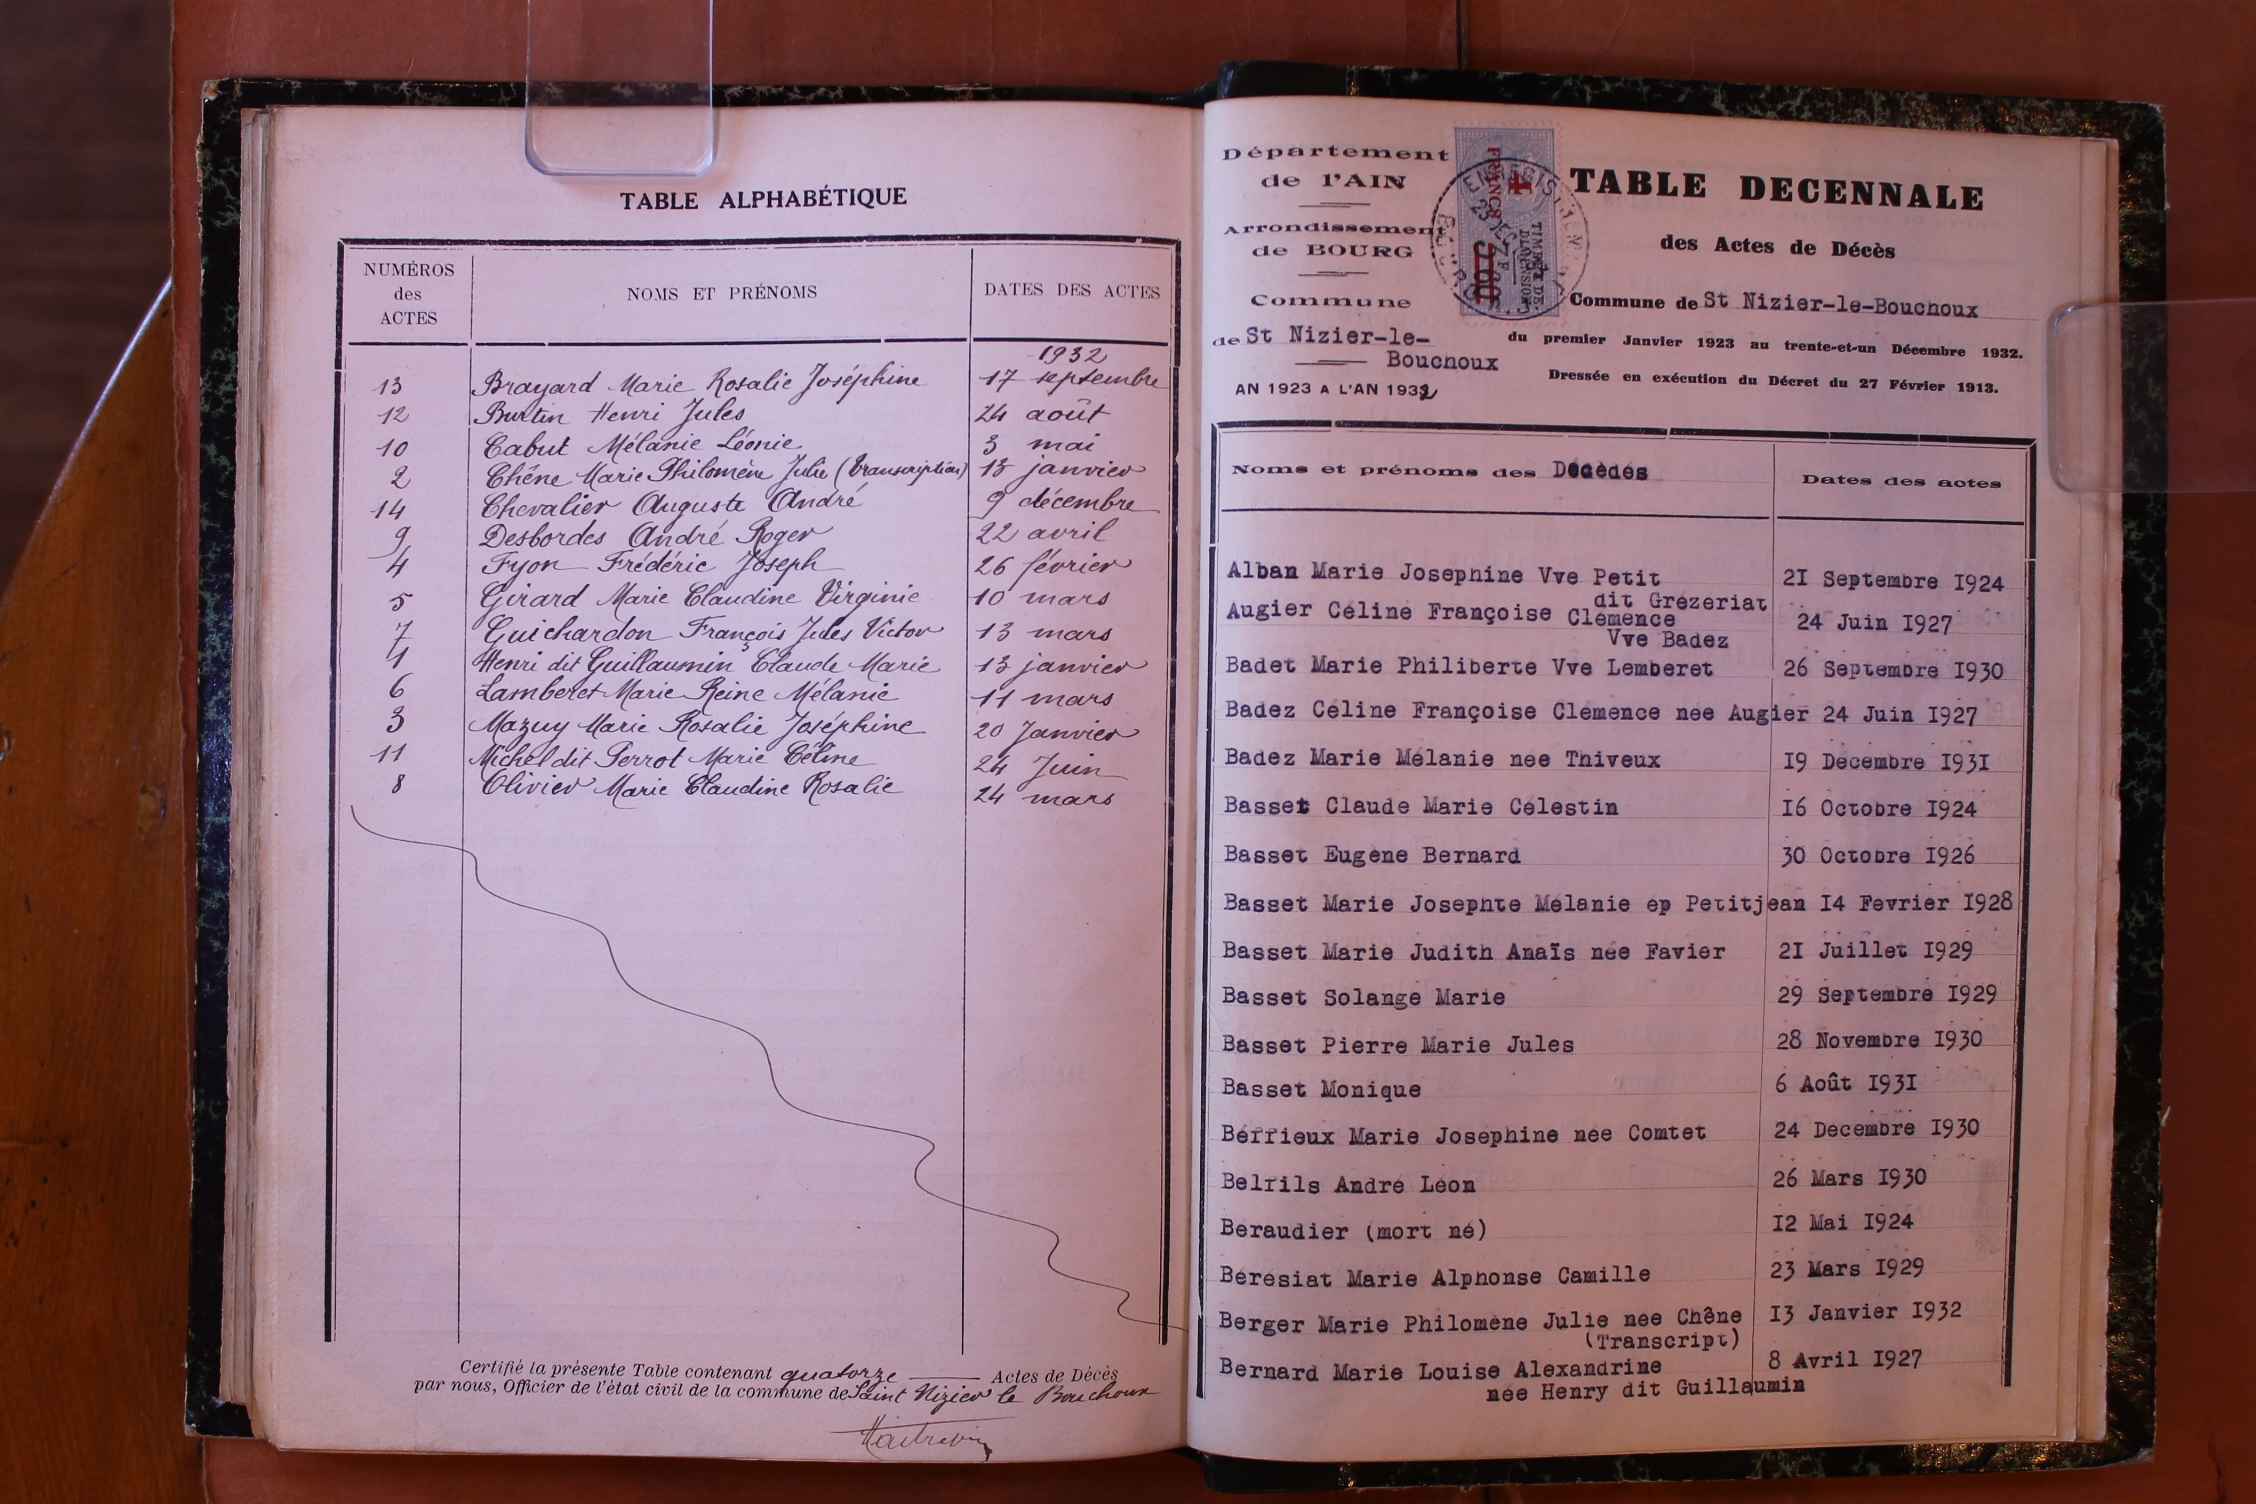 TABLE ALPHABÉTIQUE
NUMÉROS des ACTES | NOMS ET PRÉNOMS | DATES DES ACTES
1932
13 Brayard Marie Rosalie Joséphine 17 septembre
12 Burtin Henri Jules 24 août
10 Cabut Mélanie Léonie 3 mai
2 Chêne Marie Philomène Julie (Transcription) 13 janvier
14 Chevalier Auguste André 9 décembre
9 Desbordes André Roger 22 avril
4 Fyon Frédéric Joseph 26 février
5 Girard Marie Claudine Virginie 10 mars
7 Guichardon François Jules Victor 13 mars
1 Henri dit Guillaumin Claude Marie 13 janvier
6 Lamberet Marie Reine Mélanie 11 mars
3 Mazuy Marie Rosalie Joséphine 20 Janvier
11 Michel dit Perrot Marie Céline 24 Juin
8 Olivier Marie Claudine Rosalie 24 mars
Certifié la présente Table contenant quatorze Actes de Décès
par nous, Officier de l'état civil de la commune de Saint Nizier le Bouchoux
Département
de l'AIN
Arrondissement
de BOURG
Commune
de St Nizier-le-
Bouchoux
AN 1923 A L'AN 1932
4
FRANCS
TIMBRE DE
DIMENSION
TABLE DECENNALE
des Actes de Décès
Commune de St Nizier-le-Bouchoux
du premier Janvier 1923 au trente-et-un Décembre 1932.
Dressée en exécution du Décret du 27 Février 1913.
Noms et prénoms des Décédés | Dates des actes
Alban Marie Josephine Vve Petit 2I Septembre I924
dit Grézeriat
Augier Céline Françoise Clémence 24 Juin I927
Vve Badez
Badet Marie Philiberte Vve Lemberet 26 Septembre I930
Badez Céline Françoise Clémence née Augier 24 Juin I927
Badez Marie Mélanie née Thiveux I9 Décembre I93I
Basset Claude Marie Célestin I6 Octobre I924
Basset Eugène Bernard 30 Octobre I926
Basset Marie Josephte Mélanie ép Petitjean I4 Fevrier I928
Basset Marie Judith Anaïs née Favier 2I Juillet I929
Basset Solange Marie 29 Septembre I929
Basset Pierre Marie Jules 28 Novembre I930
Basset Monique 6 Août I93I
Bérrieux Marie Josephine née Comtet 24 Decembre I930
Belfils André Léon 26 Mars I930
Beraudier (mort né) I2 Mai I924
Béresiat Marie Alphonse Camille 23 Mars I929
Berger Marie Philomène Julie née Chêne I3 Janvier I932
(Transcript)
Bernard Marie Louise Alexandrine 8 Avril I927
née Henry dit Guillaumin